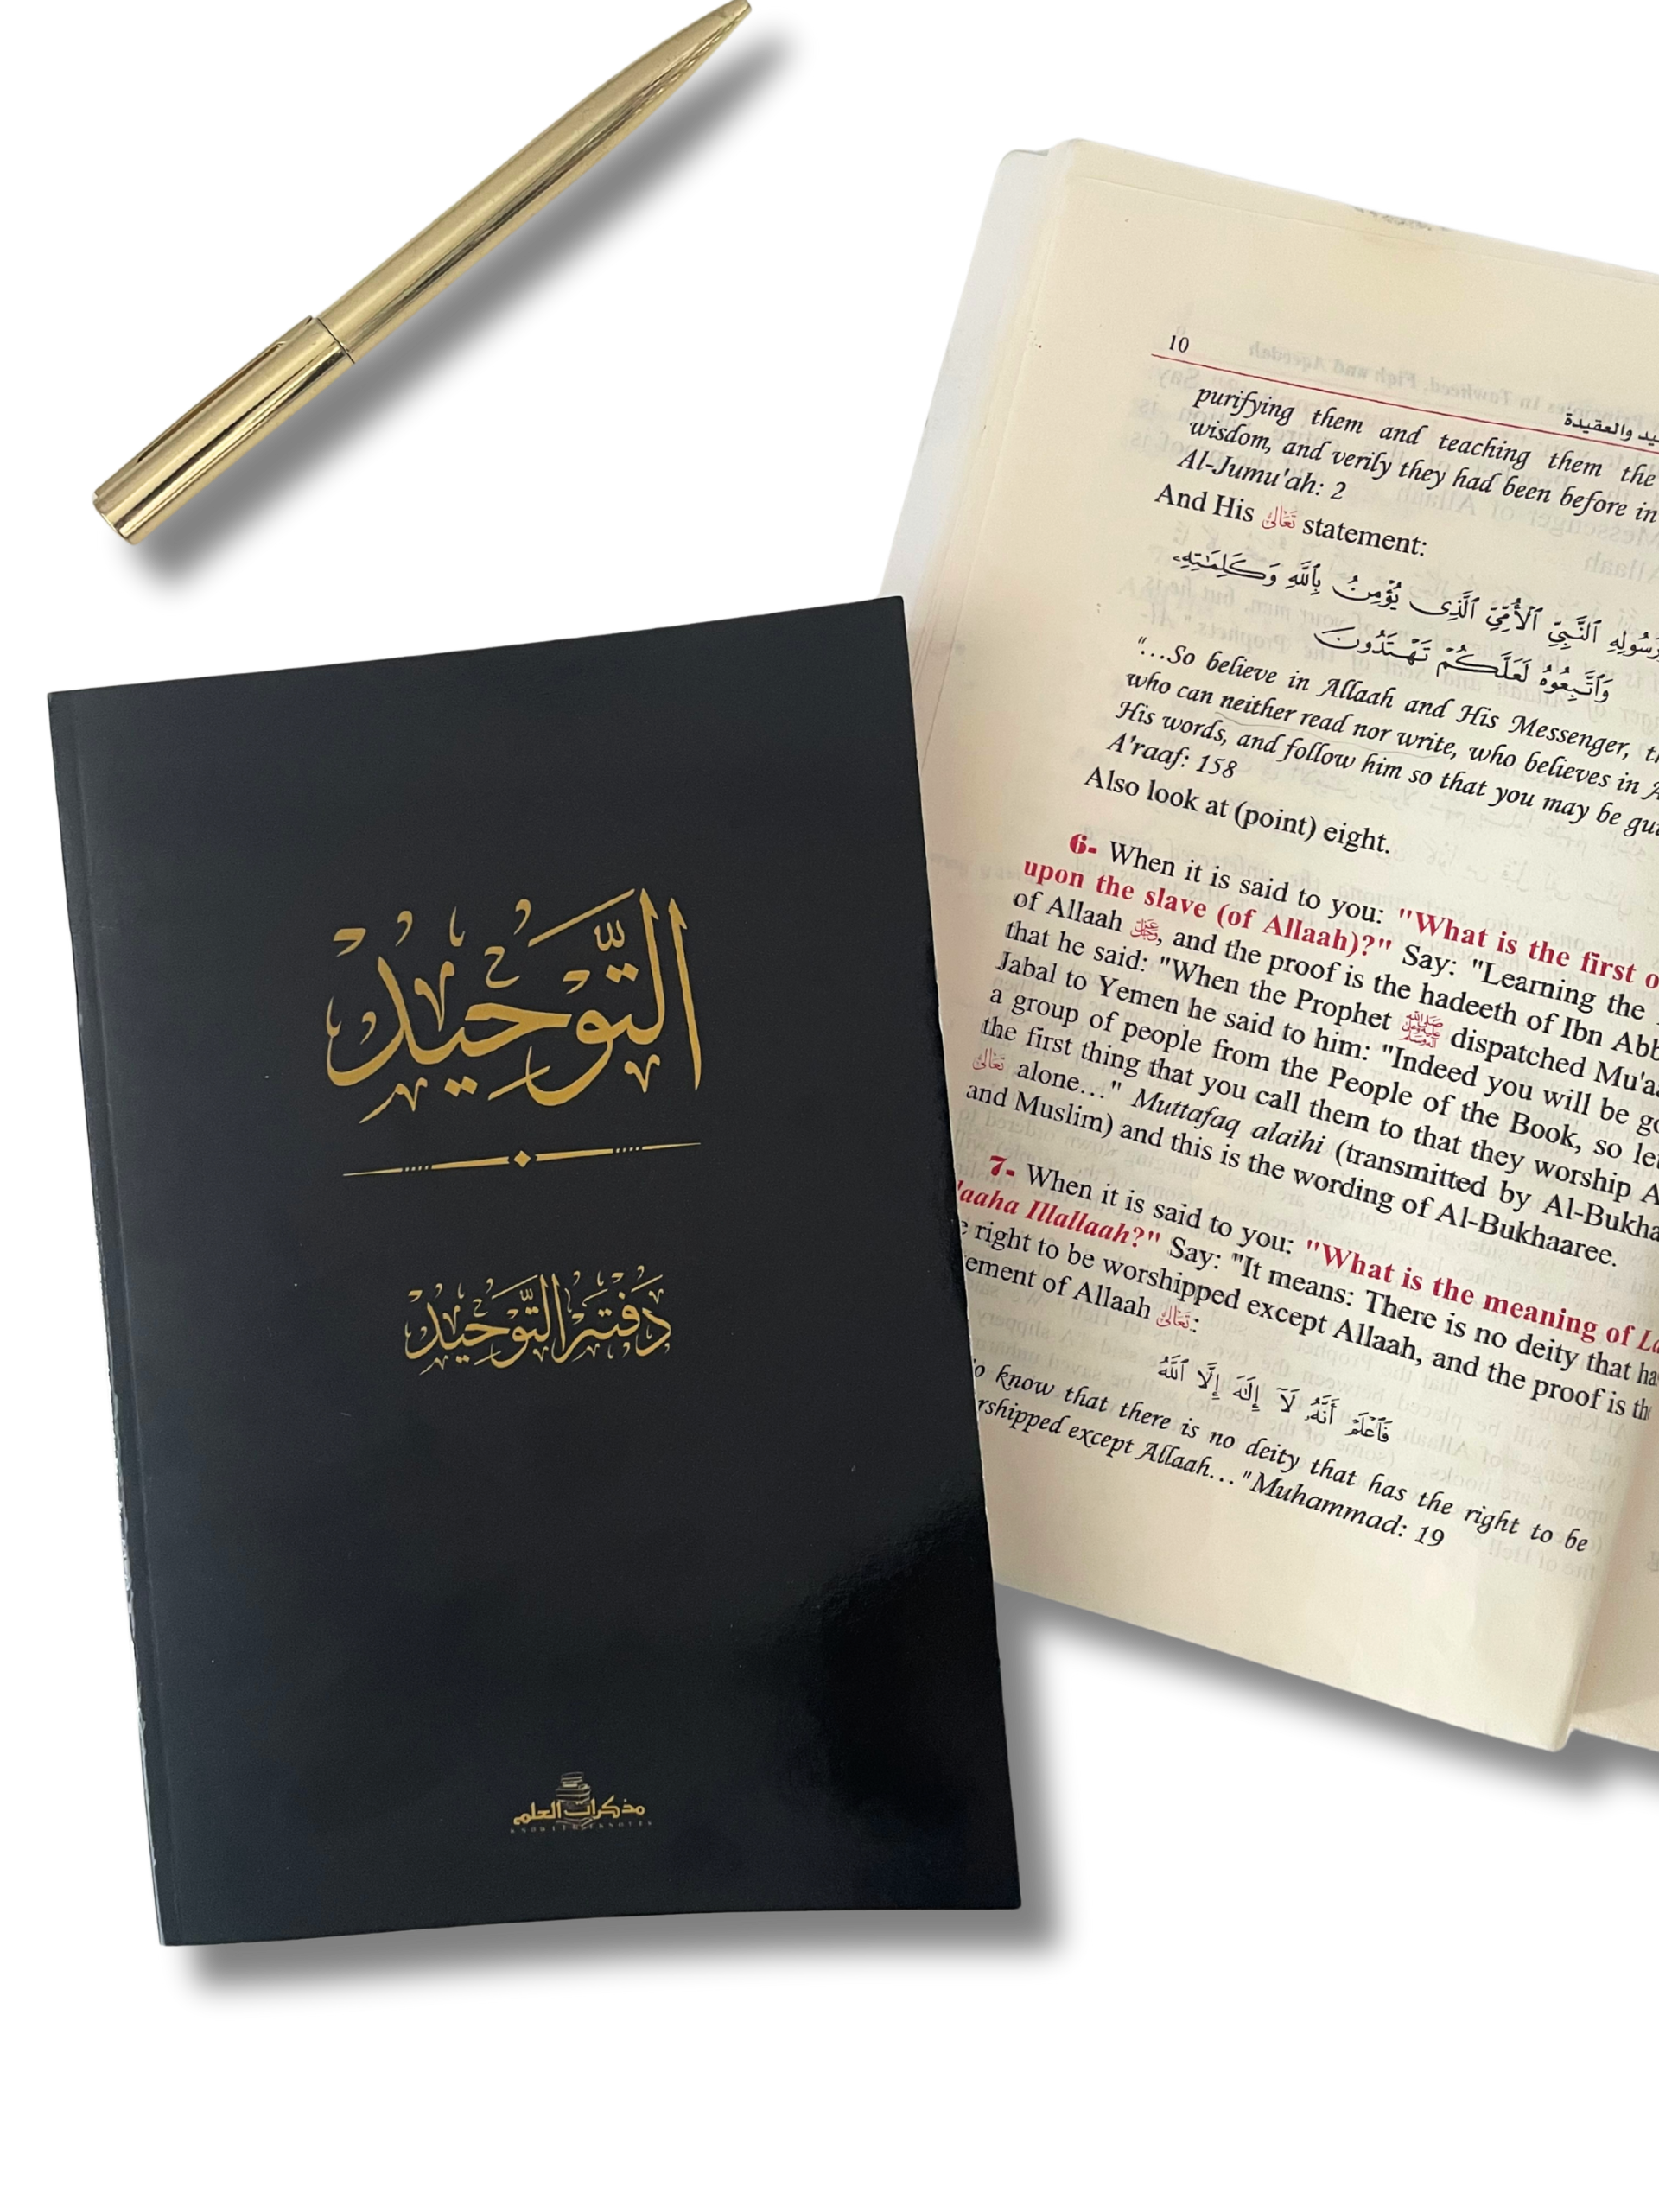 التَّوحِيد
دَفتَر التَّوحِيد
مذكرات العلم
KNOWLEDGENOTES
10
يد والعقيدة
purifying them and teaching them the
wisdom, and verily they had been before in
Al-Jumu'ah: 2
And His تَعَالَىٰ statement:
ٱلنَّبِيِّ ٱلْأُمِّيِّ ٱلَّذِى يُؤْمِنُ بِٱللَّهِ وَكَلِمَٰتِهِۦ
وَٱتَّبِعُوهُ لَعَلَّكُمْ تَهْتَدُونَ
"...So believe in Allaah and His Messenger, th
who can neither read nor write, who believes in A
His words, and follow him so that you may be gui
A'raaf: 158
Also look at (point) eight.
6- When it is said to you: "What is the first o
upon the slave (of Allaah)?" Say: "Learning the
of Allaah عز وجل, and the proof is the hadeeth of Ibn Abb
that he said: "When the Prophet ﷺ dispatched Mu'a
Jabal to Yemen he said to him: "Indeed you will be go
a group of people from the People of the Book, so let
the first thing that you call them to that they worship A
تَعَالَىٰ alone..." Muttafaq alaihi (transmitted by Al-Bukha
and Muslim) and this is the wording of Al-Bukhaaree.
7- When it is said to you: "What is the meaning of La
laaha Illallaah?" Say: "It means: There is no deity that ha
right to be worshipped except Allaah, and the proof is the
ement of Allaah تَعَالَىٰ:
فَٱعْلَمْ أَنَّهُۥ لَآ إِلَٰهَ إِلَّا ٱللَّهُ
o know that there is no deity that has the right to be
rshipped except Allaah..." Muhammad: 19